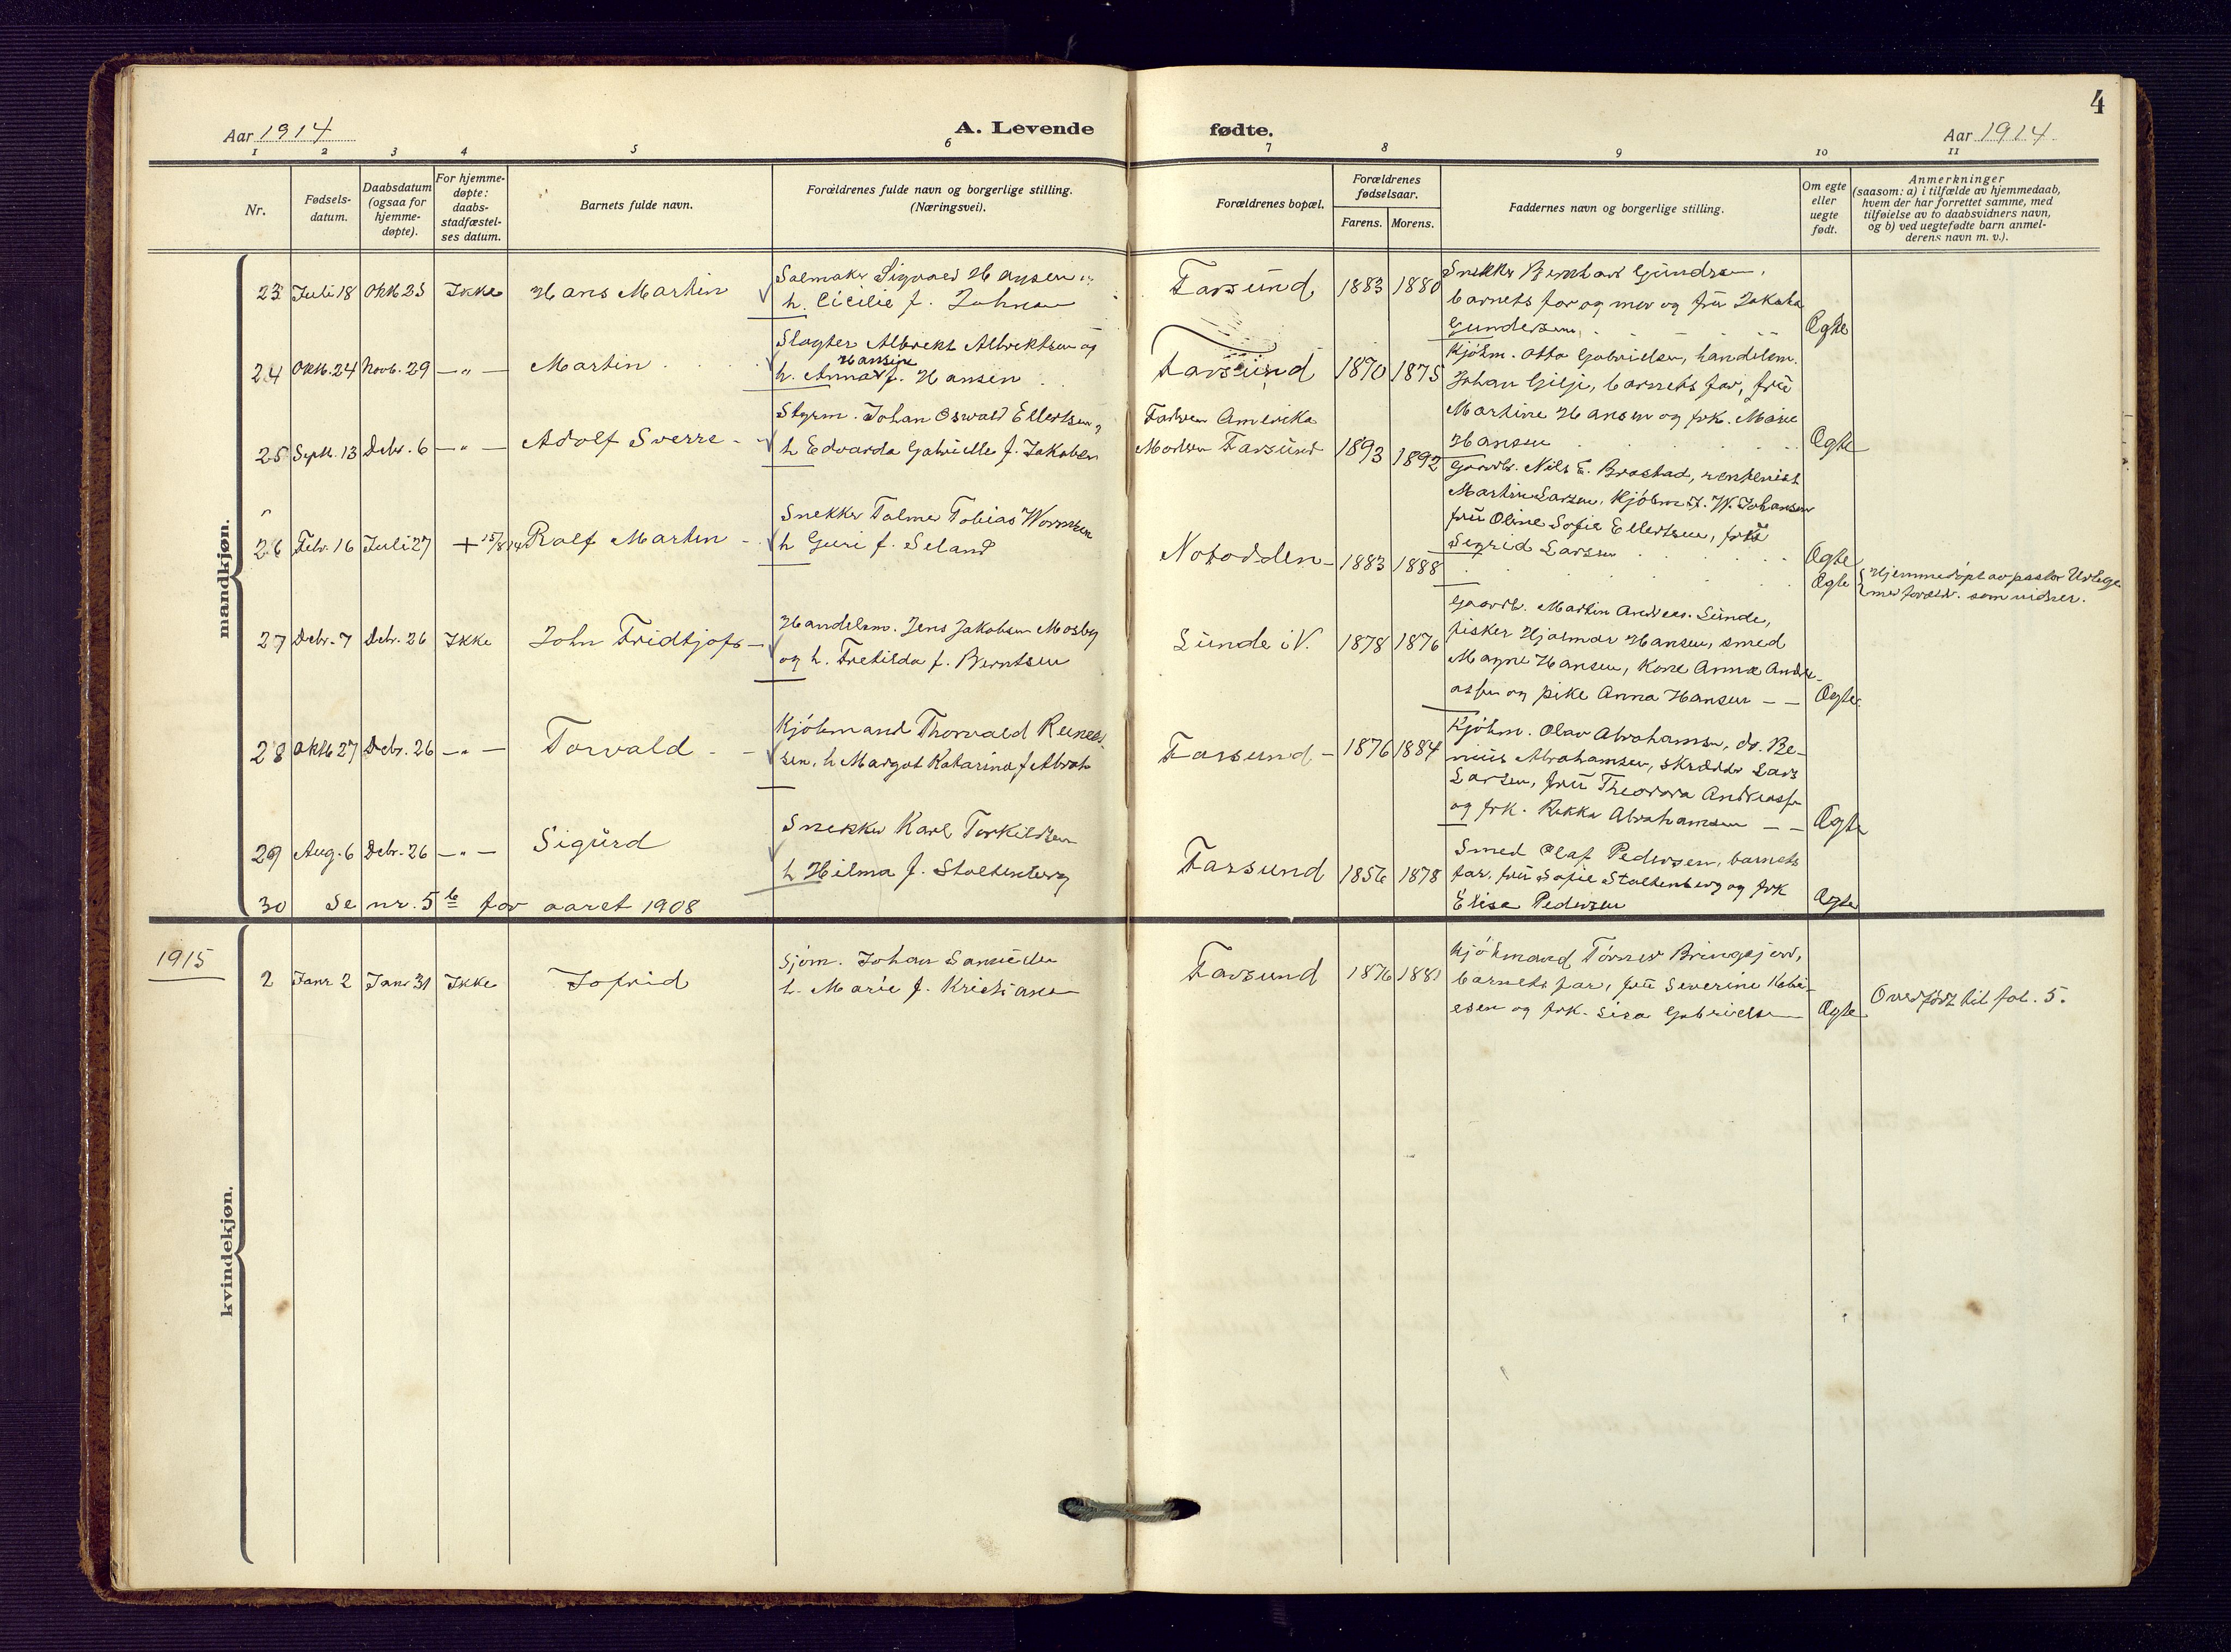 4
Aar 1914
A. Levende
fødte.
Aar 1914
1 2 3 4 5 6 7 8 9 10 11
Nr.
Fødsels-
datum.
Daabsdatum
(ogsaa for
hjemme-
døpte).
For hjemme-
døpte:
daabs-
stadfæstel-
ses datum.
Barnets fulde navn.
Forældrenes fulde navn og borgerlige stilling.
(Næringsvei).
Forældrenes bopæl.
Forældrenes
fødselsaar.
Farens. Morens.
Faddernes navn og borgerlige stilling.
Om egte
eller
uegte
født.
Anmerkninger
(saasom: a) i tilfælde av hjemmedaab,
hvem der har forrettet samme, med
tilføielse av to daabsvidners navn,
og b) ved uegtefødte barn anmel-
derens navn m. v.).
mandkjøn.
23 Juli 18 Oktb 25 Ikke Hans Martin
Salmaker Sigvald Hansen
h. Cicilie f. Johnsen
Farsund 1883 1880
Snekker Bernhart Gundersen,
barnets far og mor og frü Jakoba
Gundersen
Ægte
24 Oktb. 24 Novb. 29 –„– Martin
Slagter Albrekt Albrektsen og
h. Anna Hansine f. Hansen
Farsund 1870 1875
Kjøbm. Otto Gabrielsen, handelsm.
Johan Gilje, barnets far, frü
Martine Hansen og frk. Marie
Hansen
Ægte
25 Septb. 13 Debr. 6 –„– Adolf Sverre
Styrm. Johan Oswald Ellertsen,
h Edvarda Gabrielle f. Jakobsen
Farsund 1893 1892
Faderen Amerika
Moderen
Gaardb. Nils E. Brastad, rentenist
Martin Larsen, Kjøbm. W. Johansen
frü Oline Sofie Ellertsen, frk
Sigrid Larsen
Ægte
26 Febr. 16 Juli 27 + 15/8 14 Ralf Martin
Snekker Talmer Tobias
h Guri f. Seland
Notodden 1883 1888
Ægte
Hjemmedøpt av pastor
med foreldr. som vidner.
27 Debr. 7 Debr. 26 Ikke John Fridtjof
Handelsm. Jens Jakobsen Mosby
og h. Tretilda f. Berntsen
Sunde i V. 1878 1876
Gaardb. Martin Andreas. Sünde,
fisker Hjalmar Hansen, smed
Magne Hansen, Kone Anna Andre-
assen og pike Anna Hansen
Ægte
28 Oktb 27 Debr. 26 –„– Torvald
Kjøbmand Thorvald Reinert-
sen, h Margot Katarina f Abrah
Farsund 1876 1884
Kjøbm. Olav Abrahamsen, dr. Be-
nius Abrahamsen, skrædder Lars
Larsen, frü Theodora Andreassen
og frk. Rikka Abrahamsen
Ægte
29 Aug. 6 Debr. 26 –„– Sigürd
Snekker Karl Torkildsen
h Hilma f. Stoltenberg
Farsund 1856 1878
Smed Olaf Pedersen, barnets
far, frü Sofie Stoltenberg og frk
Elise Pedersen
Ægte
30 Se nr. 5 b for aaret 1908
kvindekjøn.
1915
2 Janr 2 Janr 31 Ikke Jofrid
Sjøm. Johan Samuelsen
h. Marie f. Kristiansen
Farsund 1876 1881
Kjøbmand Tønnes Bringsjord,
barnets far, frü Severine Kobi-
esen og frk. Lisa Gabrielsen
Ægte
Overført til fol. 5.